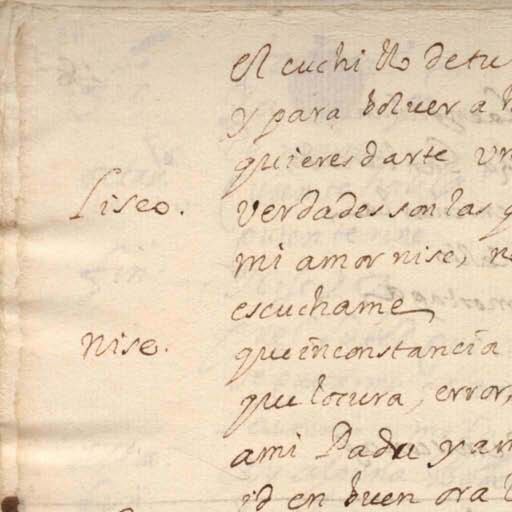 el cuchillo de tu
y para boluer a
quieres darte
Liseo. verdades son las q
mi amor nise,
escuchame
Nise. que inconstancia
que locura, error,
a mi Padre y a
id en buen ora